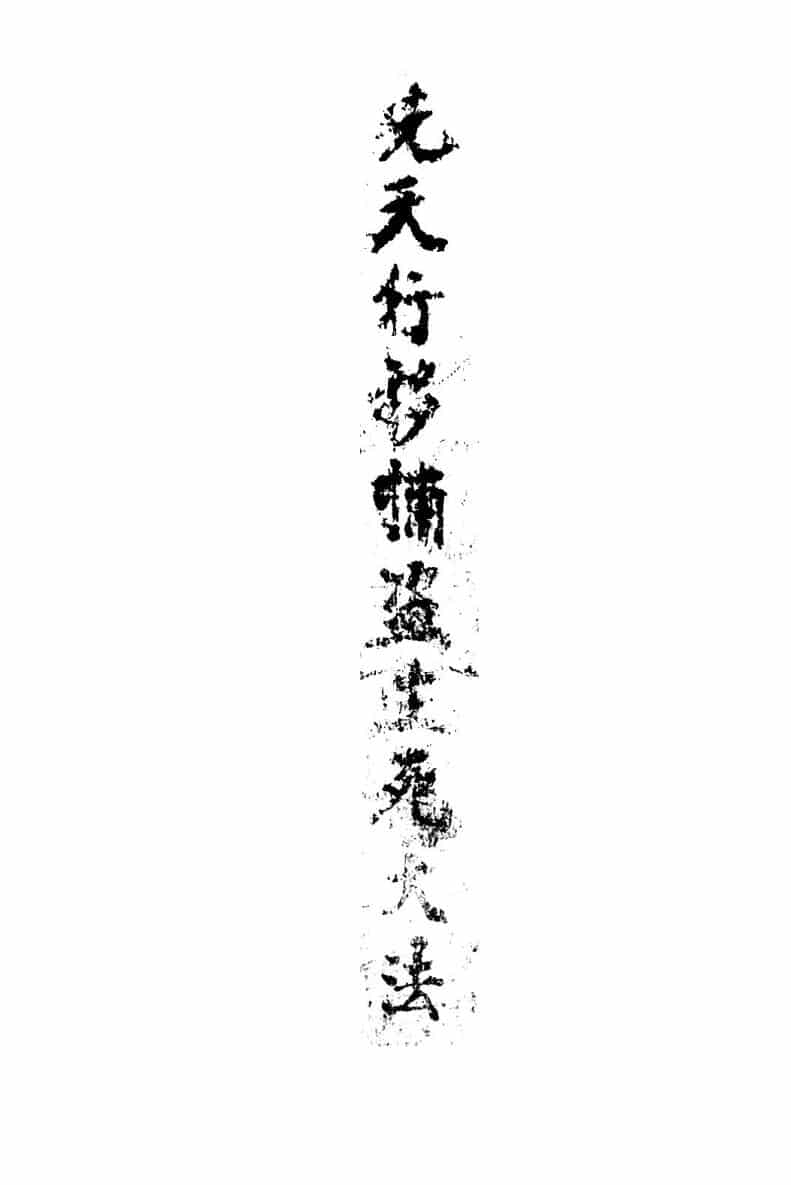 先天行移捕盗生死大法